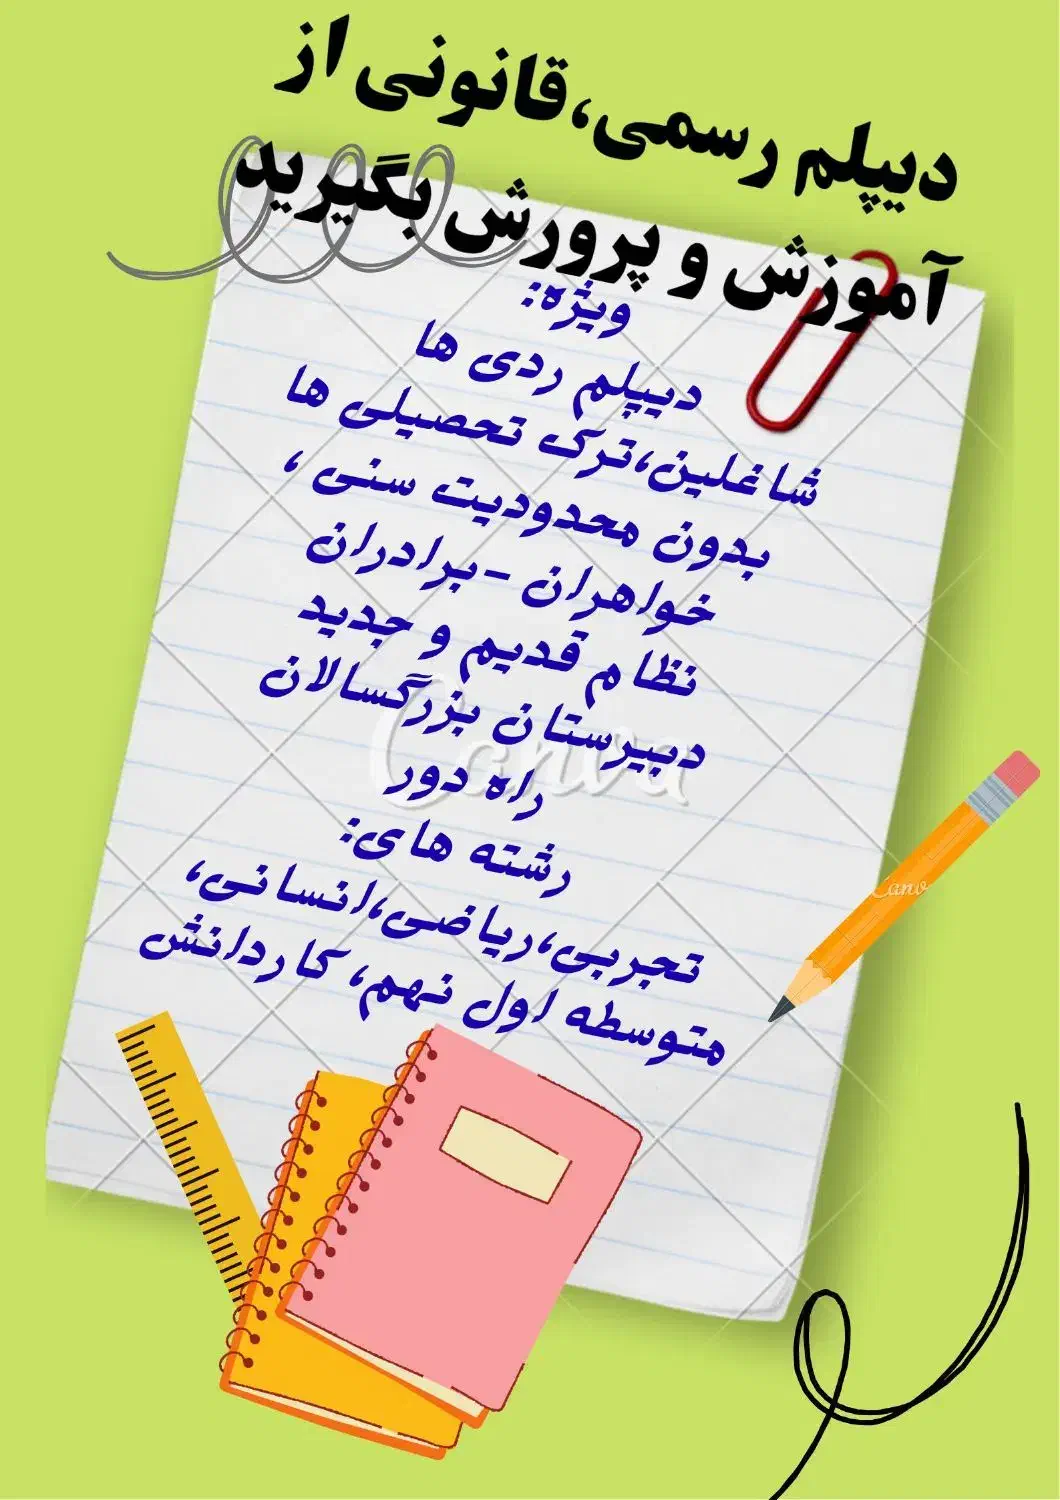 دیپلم رسمی،قانونی از
آموزش و پرورش بگیرید
ویژه:
دیپلم ردی ها
شاغلین،ترک تحصیلی ها
بدون محدودیت سنی ،
خواهران -برادران
نظام قدیم و جدید
دبیرستان بزرگسالان
راه دور
رشته های:
تجربی،ریاضی،انسانی،
متوسطه اول نهم، کاردانش
Canva
Canv